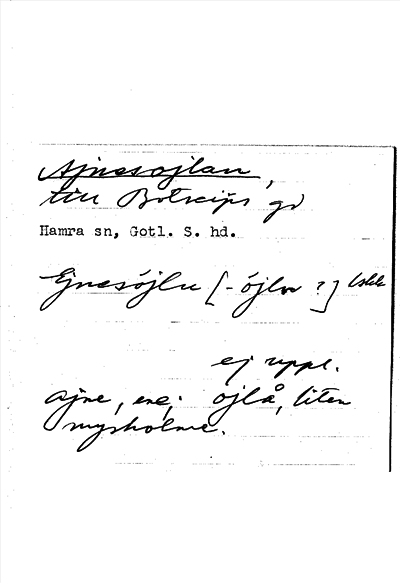 Ajnesojlan,
till Botreifs gd
Hamra sn, Gotl. S. hd.
Ejnesöjlu [-öjlor ?]
ej uppt.
ajne, ene; ojlå, liten
myrholme.